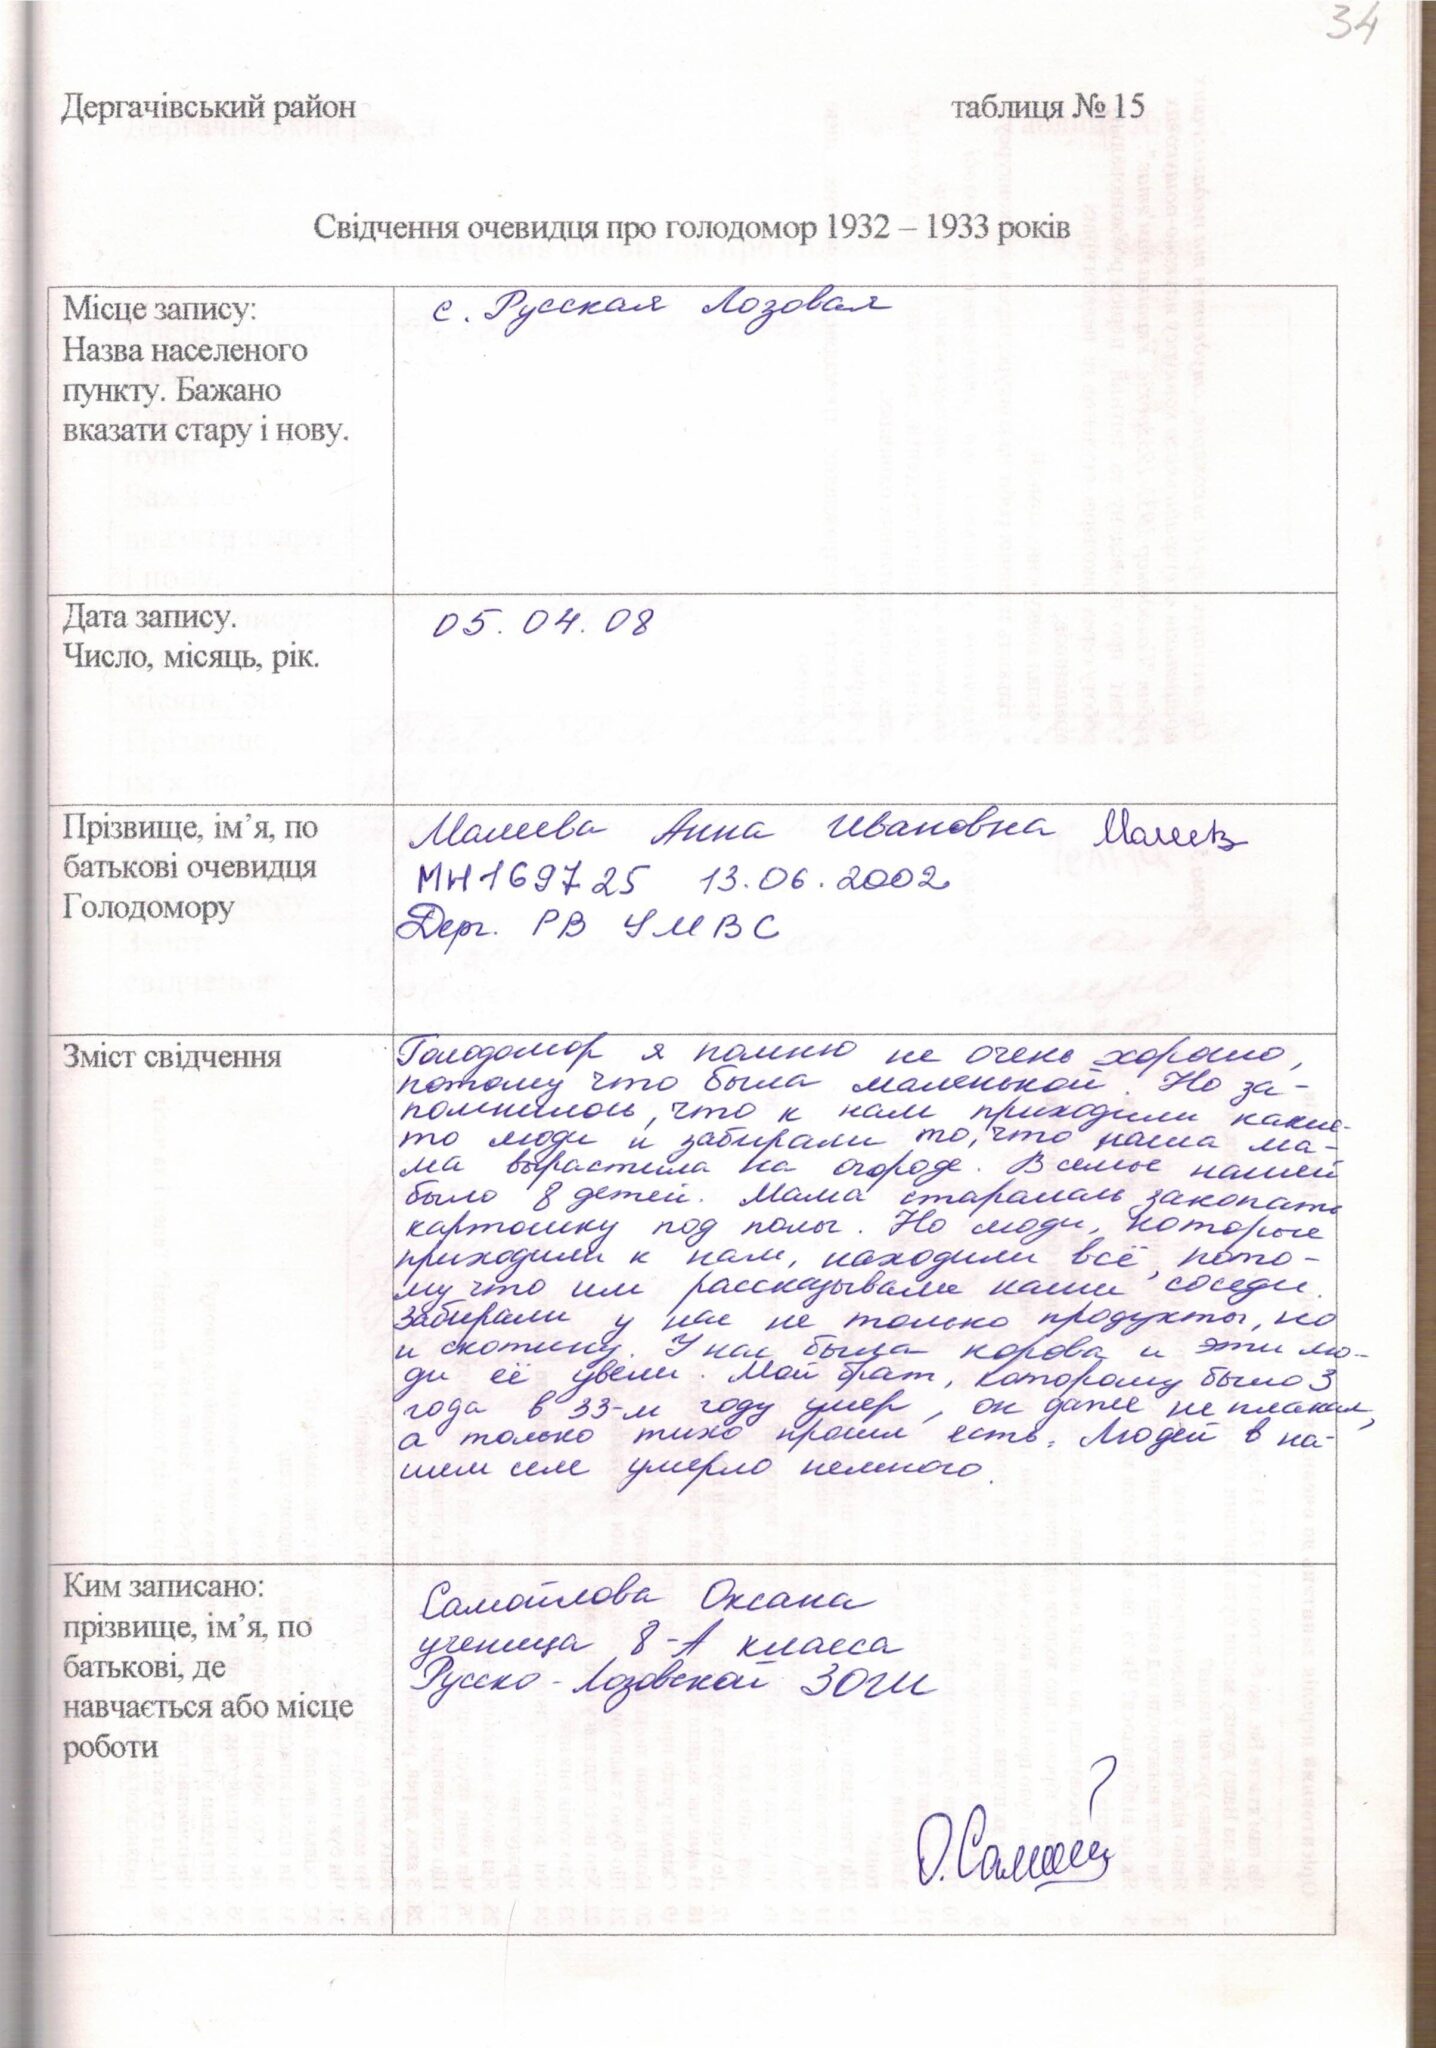 34
Дергачівський район
таблиця № 15
Свідчення очевидця про голодомор 1932 – 1933 років
Місце запису:
Назва населеного
пункту. Бажано
вказати стару і нову.
с. Русская Лозовая
Дата запису.
Число, місяць, рік.
05.04.08
Прізвище, ім’я, по
батькові очевидця
Голодомору
Анна Ивановна
МН169725 13.06.2002
Дерг. РВ УМВС
Зміст свідчення
Голодомор я помню не очень хорошо,
потому что была маленькой. Но за-
помнилось, что к нам приходили какие-
то люди и забирали то, что наша ма-
ма вырастила на огороде. В семье нашей
было 8 детей. Мама старалась закопать
картошку под полы. Но люди, которые
приходили к нам, находили всё, пото-
му что им рассказывали наши соседи.
Забирали у нас не только продукты, но
и скотину. У нас была корова и эти лю-
ди её увели. Мой брат, которому было 3
года в 33-м году умер, он даже не плакал,
а только тихо просил есть. Людей в на-
шем селе умерло немного.
Ким записано:
прізвище, ім’я, по
батькові, де
навчається або місце
роботи
Самойлова Оксана
ученица 8-А класса
Русско-Лозовской ЗОШ
О. Самой